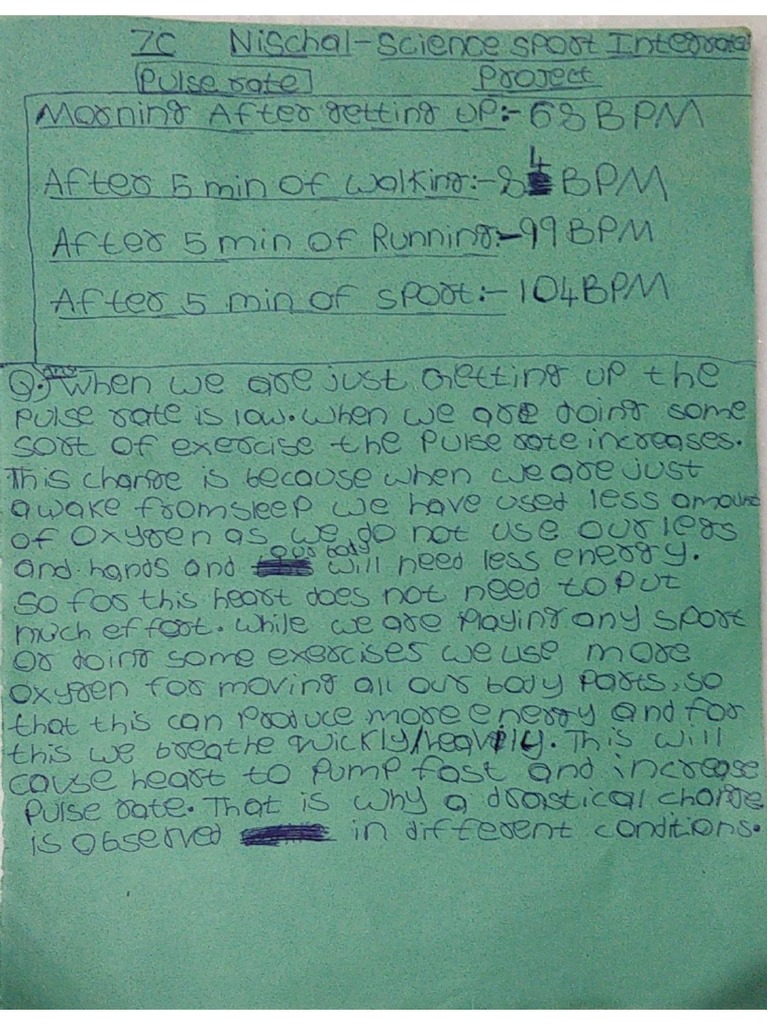 7C Nischal-Science sport Integrated
Pulse rate Project
Morning After getting up:- 68 BPM
After 5 min of walking:- 84 BPM
After 5 min of Running:- 99 BPM
After 5 min of sport:- 104 BPM
Q. Ans When we are just Getting up the
pulse rate is low. When we are doing some
sort of exercise the pulse rate increases.
This change is because when we are just
awake from sleep we have used less amount
of oxygen as we do not use our legs
and hands and our body will need less energy.
So for this heart does not need to put
much effort. While we are playing any sport
or doing some exercises we use more
oxygen for moving all our body parts, so
that this can produce more energy and for
this we breathe quickly/heavily. This will
cause heart to pump fast and increase
pulse rate. That is why a drastical change
is observed in different conditions.